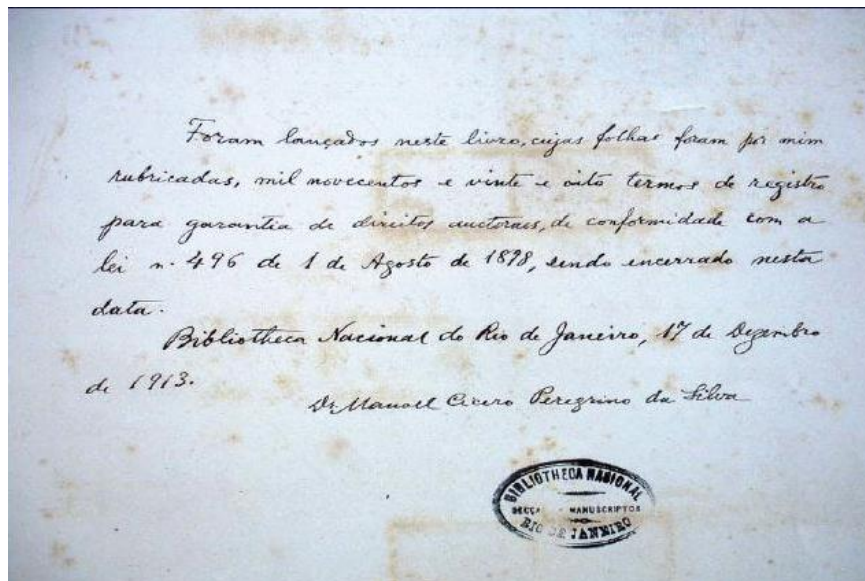 Foram lançados neste livro, cujas folhas foram por mim
rubricadas, mil novecentos e vinte e oito termos de registro
para garantia de direitos auctoraes, de conformidade com a
lei n. 496 de 1 de Agosto de 1898, sendo encerrado nesta
data.
Bibliotheca Nacional do Rio de Janeiro, 17 de Dezembro
de 1913.
Dr Manoel Cicero Peregrino da Silva
BIBLIOTHECA NACIONAL
MANUSCRIPTOS
RIO DE JANEIRO